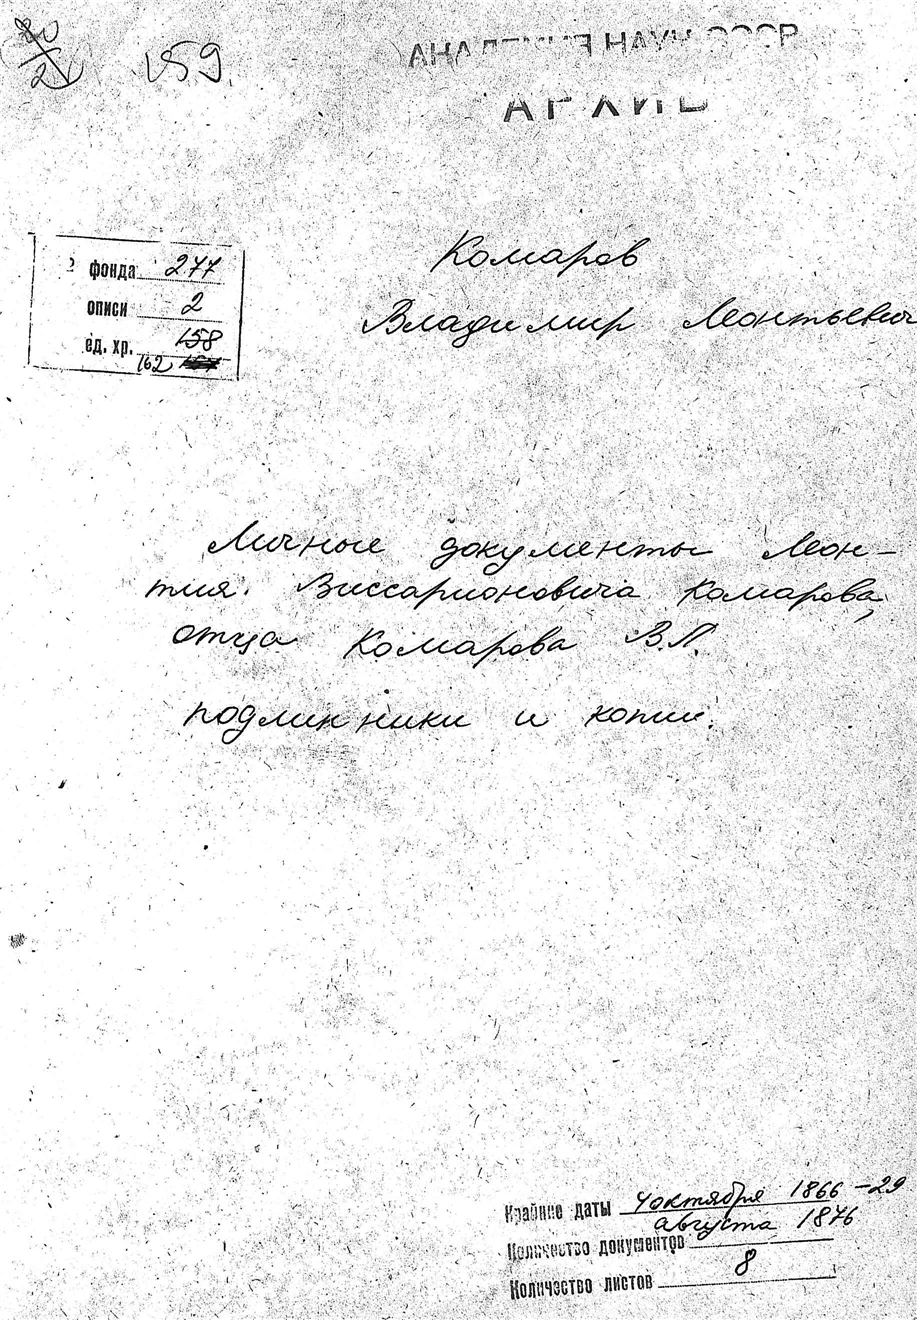 20
2
159
АКАДЕМИЯ НАУК СССР
АРХИВ
фонда 277
описи 2
ед. хр. 158
162
Комаров
Владимир Леонтьевич
Личные документы Леон-
тия Виссарионовича Комарова,
отца Комарова В.Л.
подлинники и копии.
Крайние даты 4 октября 1866 – 29
августа 1876
Количество документов
8
Количество листов